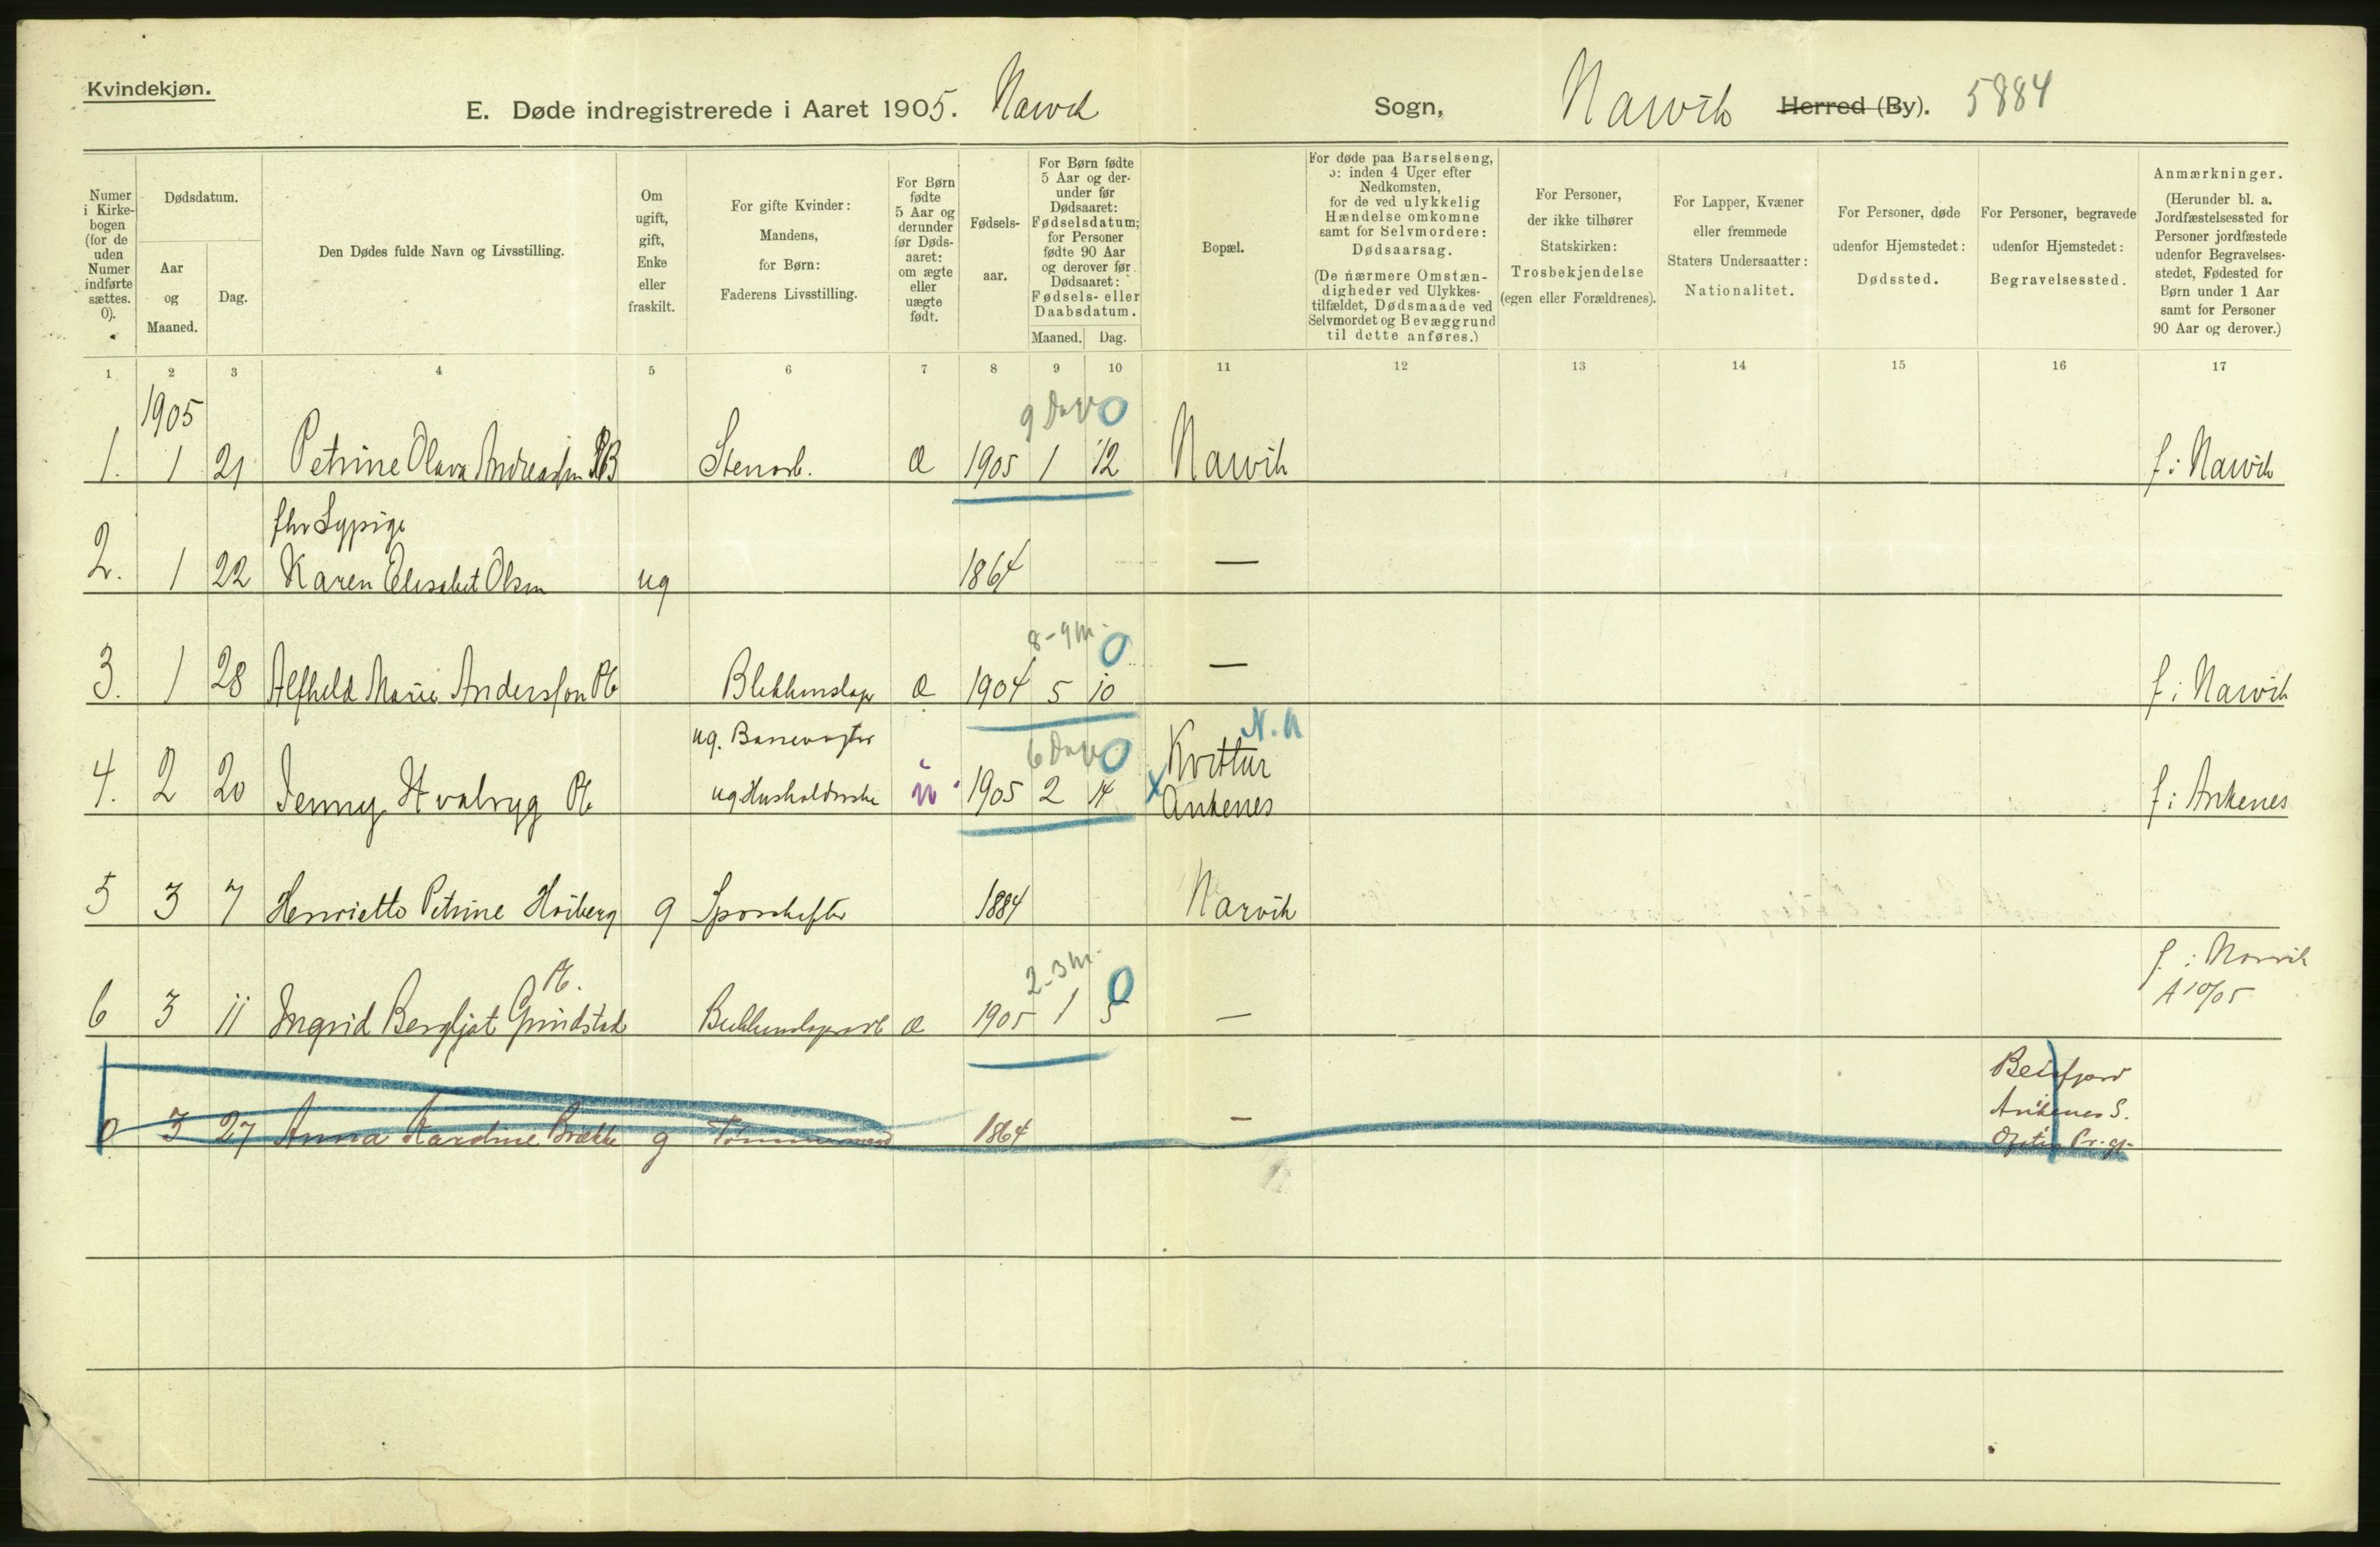 Kvindekjøn.
E. Døde indregistrerede i Aaret 1905. Narvik Sogn, Narvik Herred (By). 5884
Numer i Kirkebogen (for de uden Numer indførte sættes. 0).
Dødsdatum.
Aar og Maaned.
Dag.
Den Dødes fulde Navn og Livsstilling.
Om ugift, gift, Enke eller fraskilt.
For gifte Kvinder: Mandens, for Børn: Faderens Livsstilling.
For Børn fødte 5 Aar og derunder før Dødsaaret: om ægte eller uægte født.
Fødselsaar.
For Børn fødte 5 Aar og derunder før Dødsaaret: Fødselsdatum; for Personer fødte 90 Aar og derover før Dødsaaret: Fødsels- eller Daabsdatum.
Maaned. Dag.
Bopæl.
For døde paa Barselseng, ɔ: inden 4 Uger efter Nedkomsten, for de ved ulykkelig Hændelse omkomne samt for Selvmordere: Dødsaarsag.
(De nærmere Omstændigheder ved Ulykkestilfældet, Dødsmaade ved Selvmordet og Bevæggrund til dette anføres.)
For Personer, der ikke tilhører Statskirken: Trosbekjendelse (egen eller Forældrenes).
For Lapper, Kvæner eller fremmede Staters Undersaatter: Nationalitet.
For Personer, døde udenfor Hjemstedet: Dødssted.
For Personer, begravede udenfor Hjemstedet: Begravelsessted.
Anmærkninger.
(Herunder bl. a. Jordfæstelsessted for Personer jordfæstede udenfor Begravelsesstedet, Fødested for Børn under 1 Aar samt for Personer 90 Aar og derover.)
1 2 3 4 5 6 7 8 9 10 11 12 13 14 15 16 17
1905
9 Dage 0
1. 1 21 Petrine Olava Andreassen PB Stenarb. æ 1905 1 12 Narvik f: Narvik
fhv Sypige
2. 1 22 Karen Elisabet Olsen ug 1864 —
8-9 m. 0
3. 1 28 Alfhild Marie Andersson Pb Blikkenslager æ 1904 5 10 — f: Narvik
ug. 6 Dage 0 N. N
4. 2 20 Jenny Hvalryg Pb ug Husholderske u 1905 2 14 x Ankenes f: Ankenes
5 3 7 Henriette Petrine Hoiberg g 1884 Narvik
Pb. 2-3 m. 0 f. : Narvik
6 3 11 Ingrid Bergljot Grindstad Blikkenslagerarb æ 1905 1 5 — A 10/05
Beisfjord
Ankenes S.
0 3 27 Anna Brække g Tømmermand 1864 — Ofoten Pr.gj.